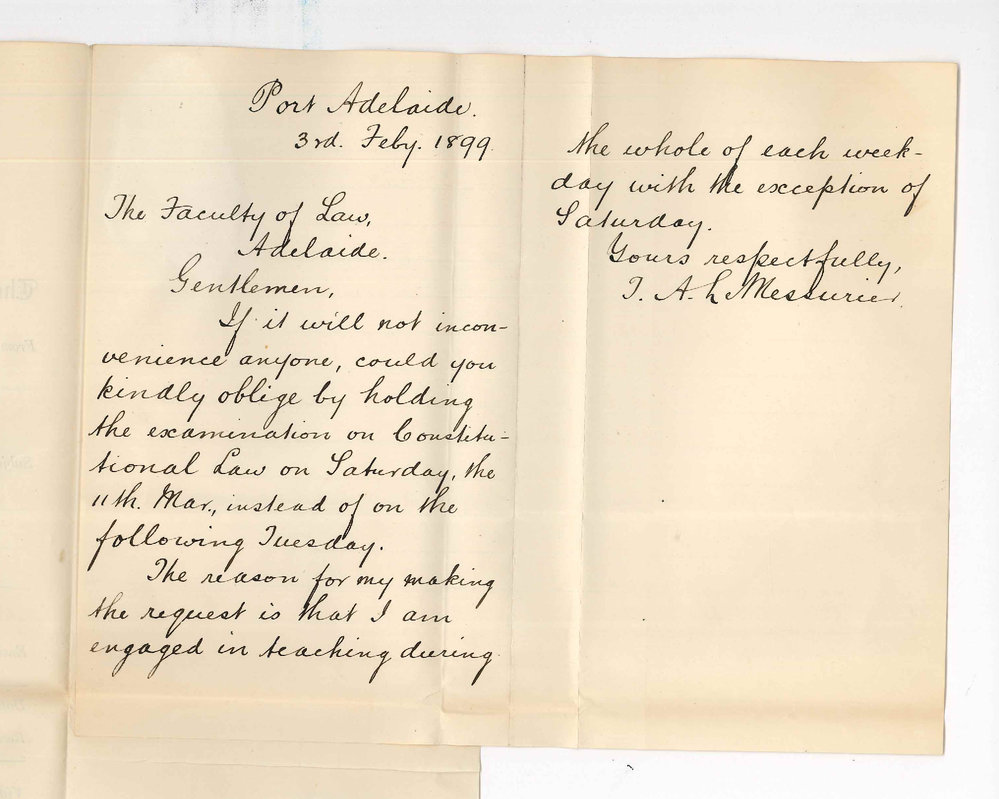 Port Adelaide.
3rd. Feby. 1899.
The Faculty of Law,
Adelaide.
Gentlemen,
If it will not incon-
venience anyone, could you
kindly oblige by holding
the examination on Constitu-
tional Law on Saturday, the
11th. Mar., instead of on the
following Tuesday.
The reason for my making
the request is that I am
engaged in teaching during
the whole of each week-
day with the exception of
Saturday.
Yours respectfully,
T. A. Le Messurier.